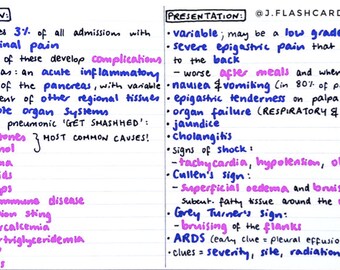 ON:
es 3% of all admissions with
inal pain
of these develop complications
as: an acute inflammatory
of the pancreas, with variable
ent of other regional tissues
ote organ systems
pneumonic 'GET SMASHED':
tones } MOST COMMON CAUSES!
nol
ma
ids
ps
mmune disease
ion sting
rcalcemia
triglyceridemia
PRESENTATION: @J.FLASHCARD
• variable; may be a low grade
• severe epigastric pain that
to the back
– worse after meals and when
• nausea & vomiting (in 80% of p
• epigastric tenderness on palpa
• organ failure (RESPIRATORY &
• jaundice
• cholangitis
• signs of shock:
– tachycardia, hypotension, ol
• Cullen's sign:
– superficial oedema and bruis
subcut. fatty tissue around the
• Grey Turner's sign:
– bruising of the flanks
• ARDS (early clue = pleural effusion
• clues = severity, site, radiation